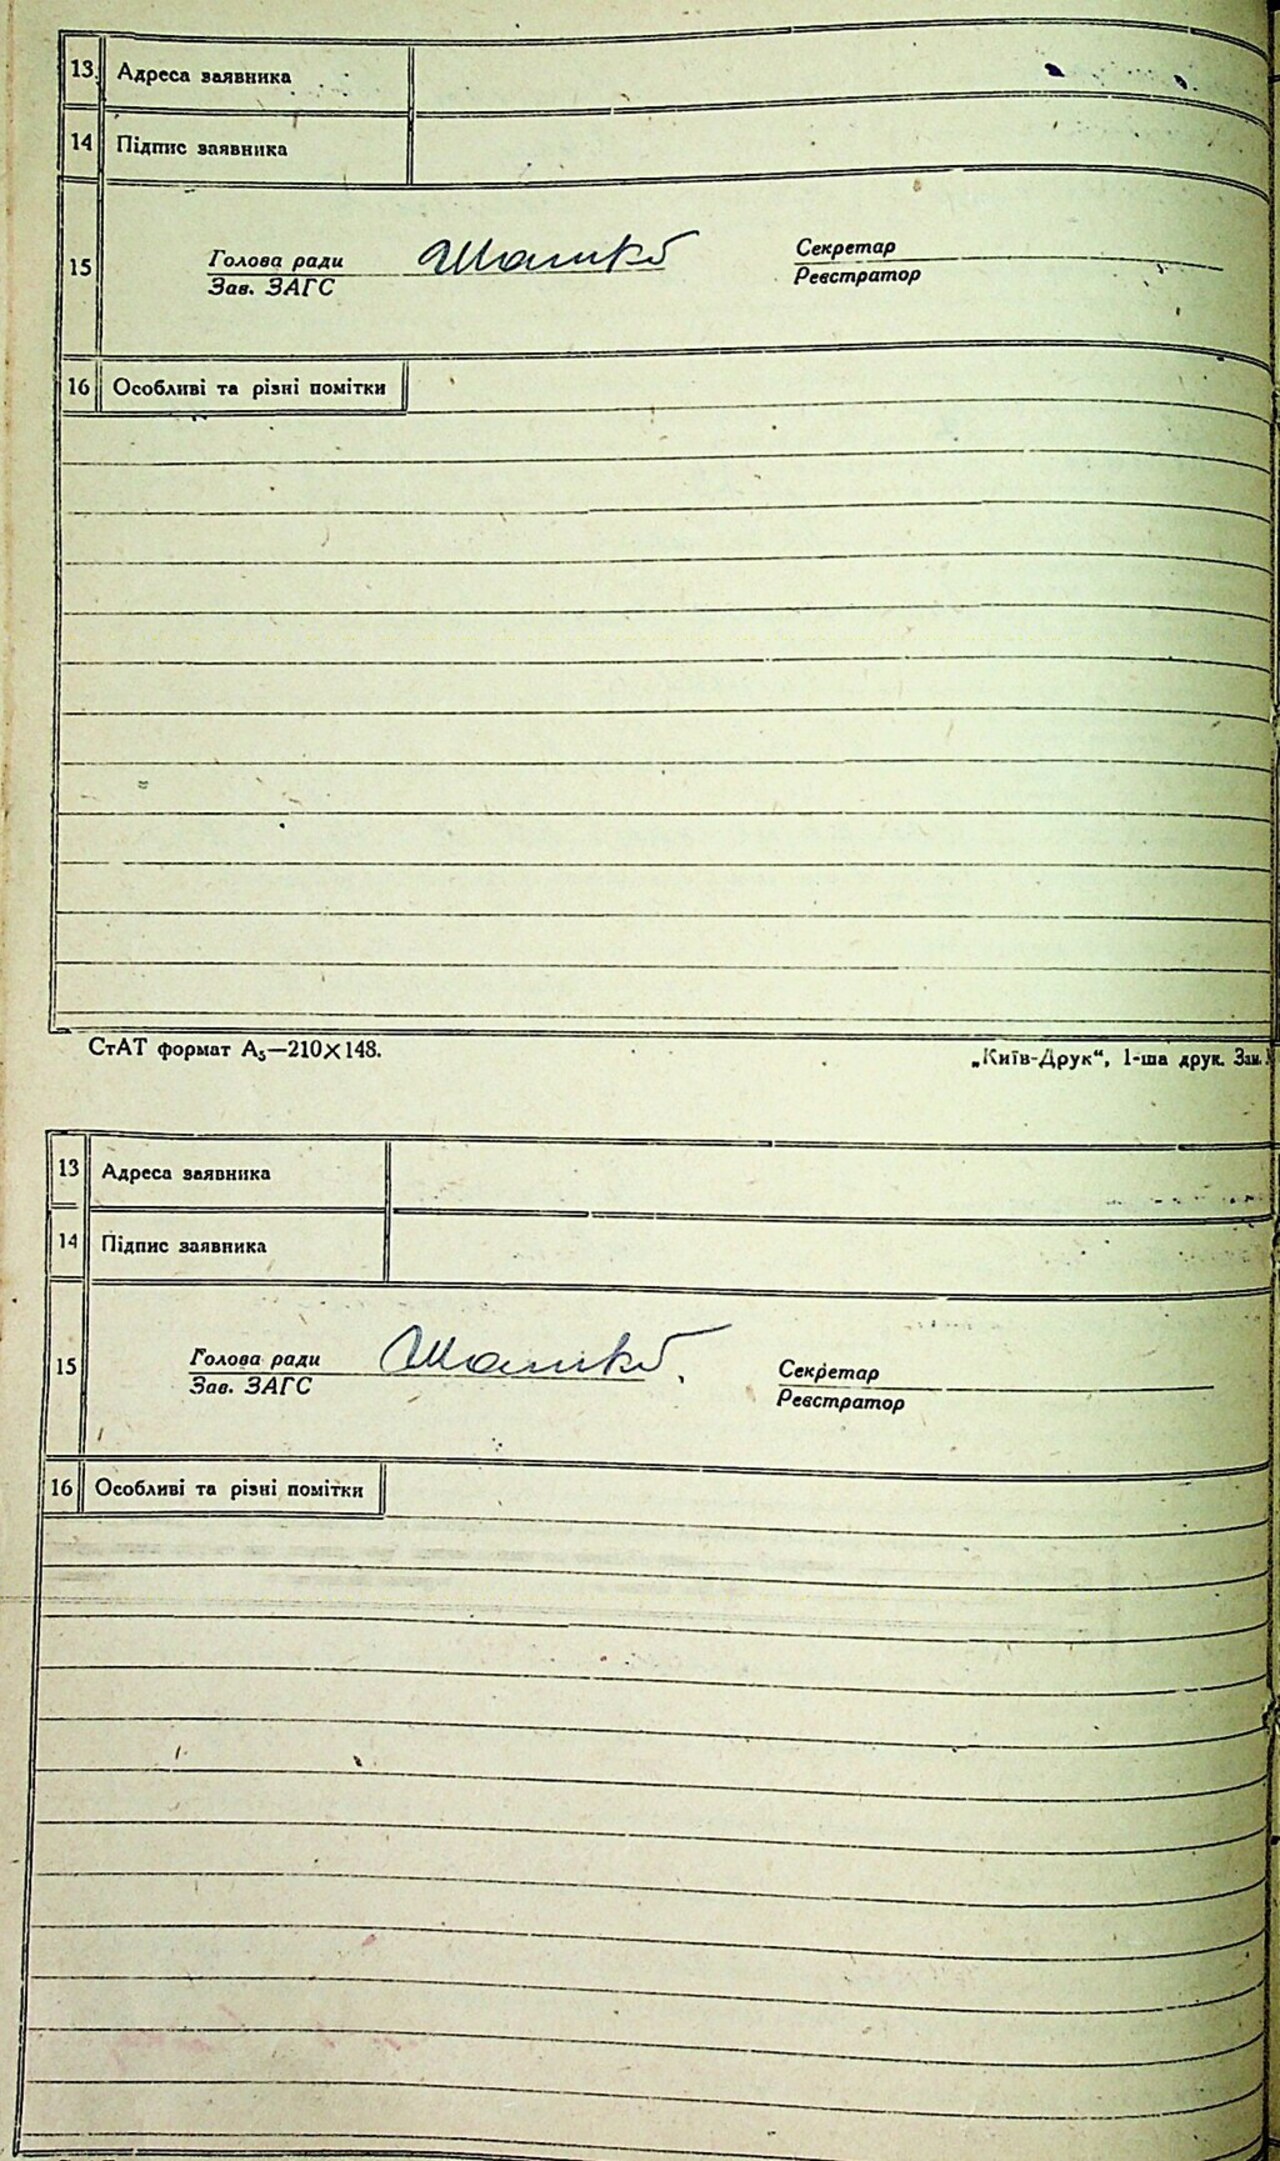 13 Адреса заявника
14 Підпис заявника
15 Голова ради Секретар
Зав. ЗАГС Реєстратор
16 Особливі та різні помітки
СтАТ формат А₅—210×148. „Київ-Друк“, 1-ша друк. Зам.
13 Адреса заявника
14 Підпис заявника
15 Голова ради Секретар
Зав. ЗАГС Реєстратор
16 Особливі та різні помітки